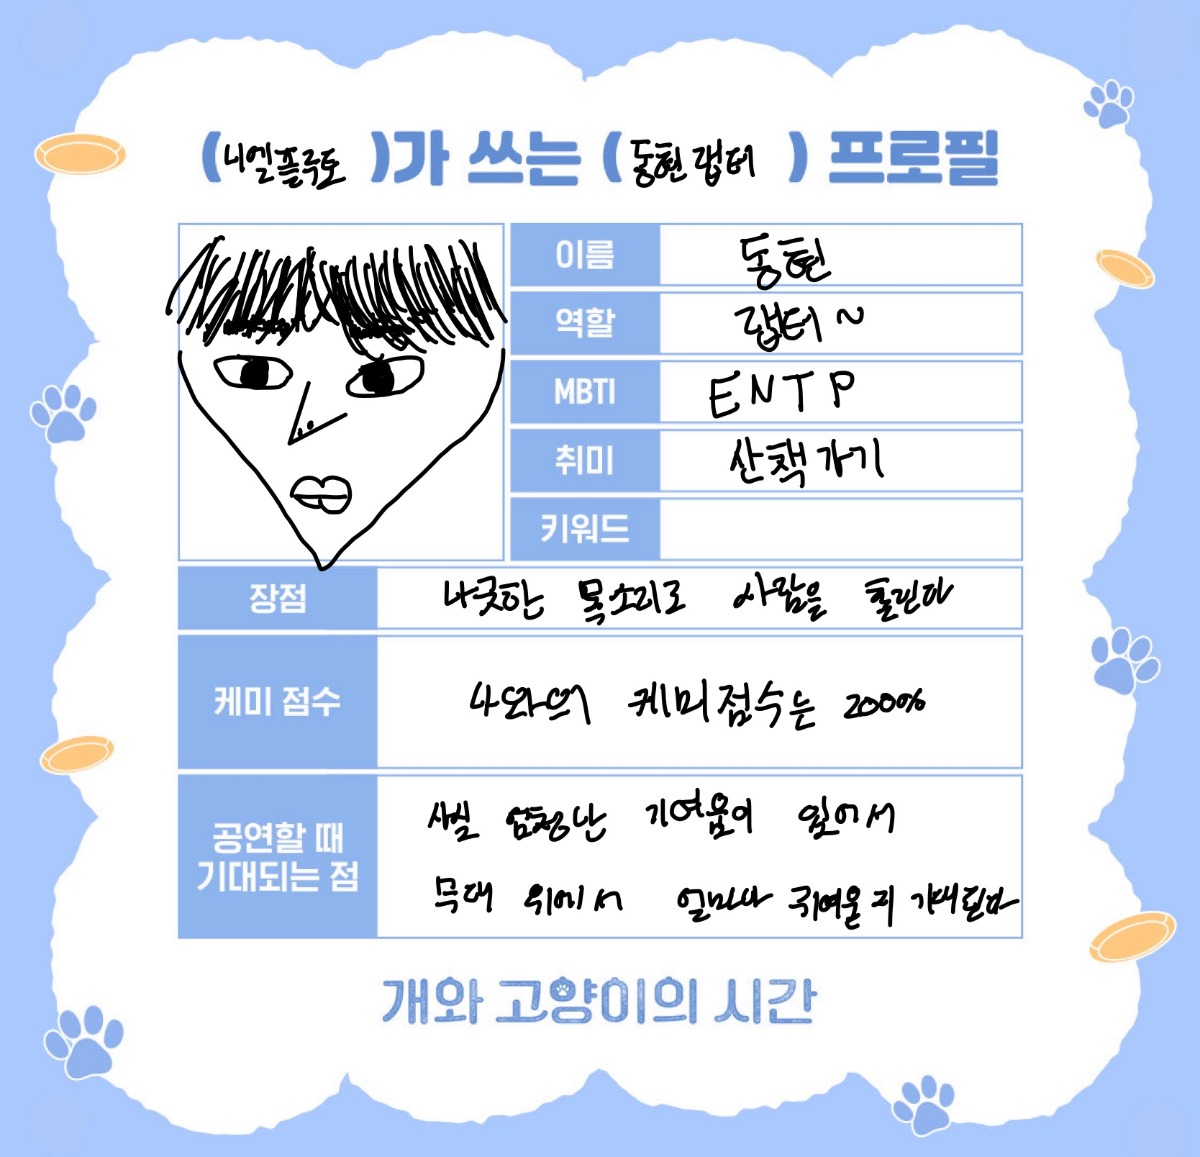 (니엘플루토)가 쓰는 (동현랩터) 프로필
이름 동현
역할 랩터~
MBTI ENTP
취미 산책가기
키워드
장점 나긋한 목소리로 사람을 홀린다
케미 점수 나와의 케미점수는 200%
공연할 때
기대되는 점
사실 엄청난 귀여움이 있어서
무대 위에서 얼마나 귀여울지 기대된다
개와 고양이의 시간